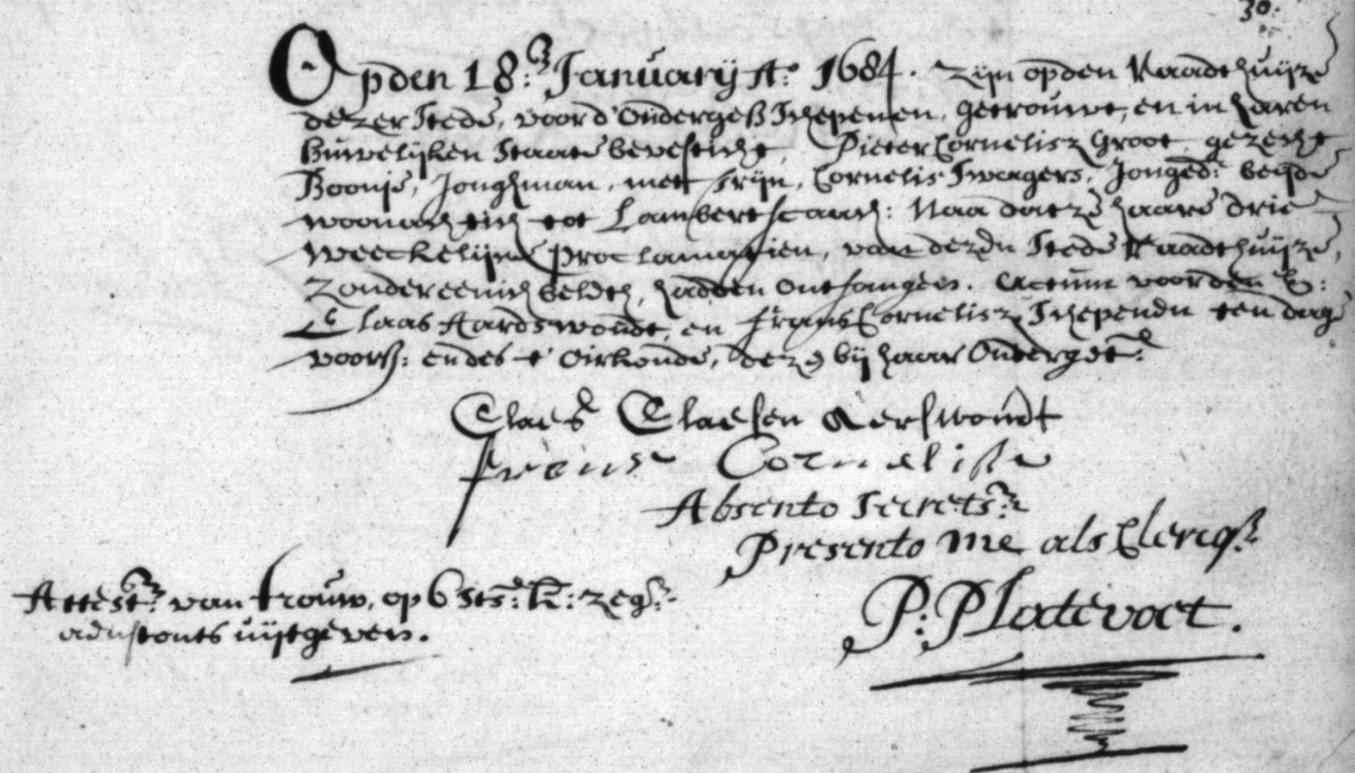 30.
Opden 18: January Ao: 1684. zijn opden Raadthuijze
dezer Stede, voor d'Ondergesz Schepenen, getrouwt, en in haren
Huwelijken Staate bevesticht, Pieter Cornelisz Groot, gezecht
Boontje, Jonghman, met Trijn, Cornelis Swagers, Jonged: beyde
woonachtich tot Lambertscaech: Naa dat ze haare drie
weeckelijxe Proclamatien, van dezen Stede Raadthuijze,
zonder eenich beleth, hadden ontfangen. Actum voor den E:
Claas Aardswoudt, en Frans Cornelisz, Schepenen ten dage
voorsz: en des t' Oirkonde, deze bij haar Ondergett:
Claes Claesen Aerswoudt
Frans Cornelisse
Absento Secrets:
Presento Me als Clercq
P: Platevoet.
Attest: van trouw, op 6 sts: kl: zeg:
uijtgeven.